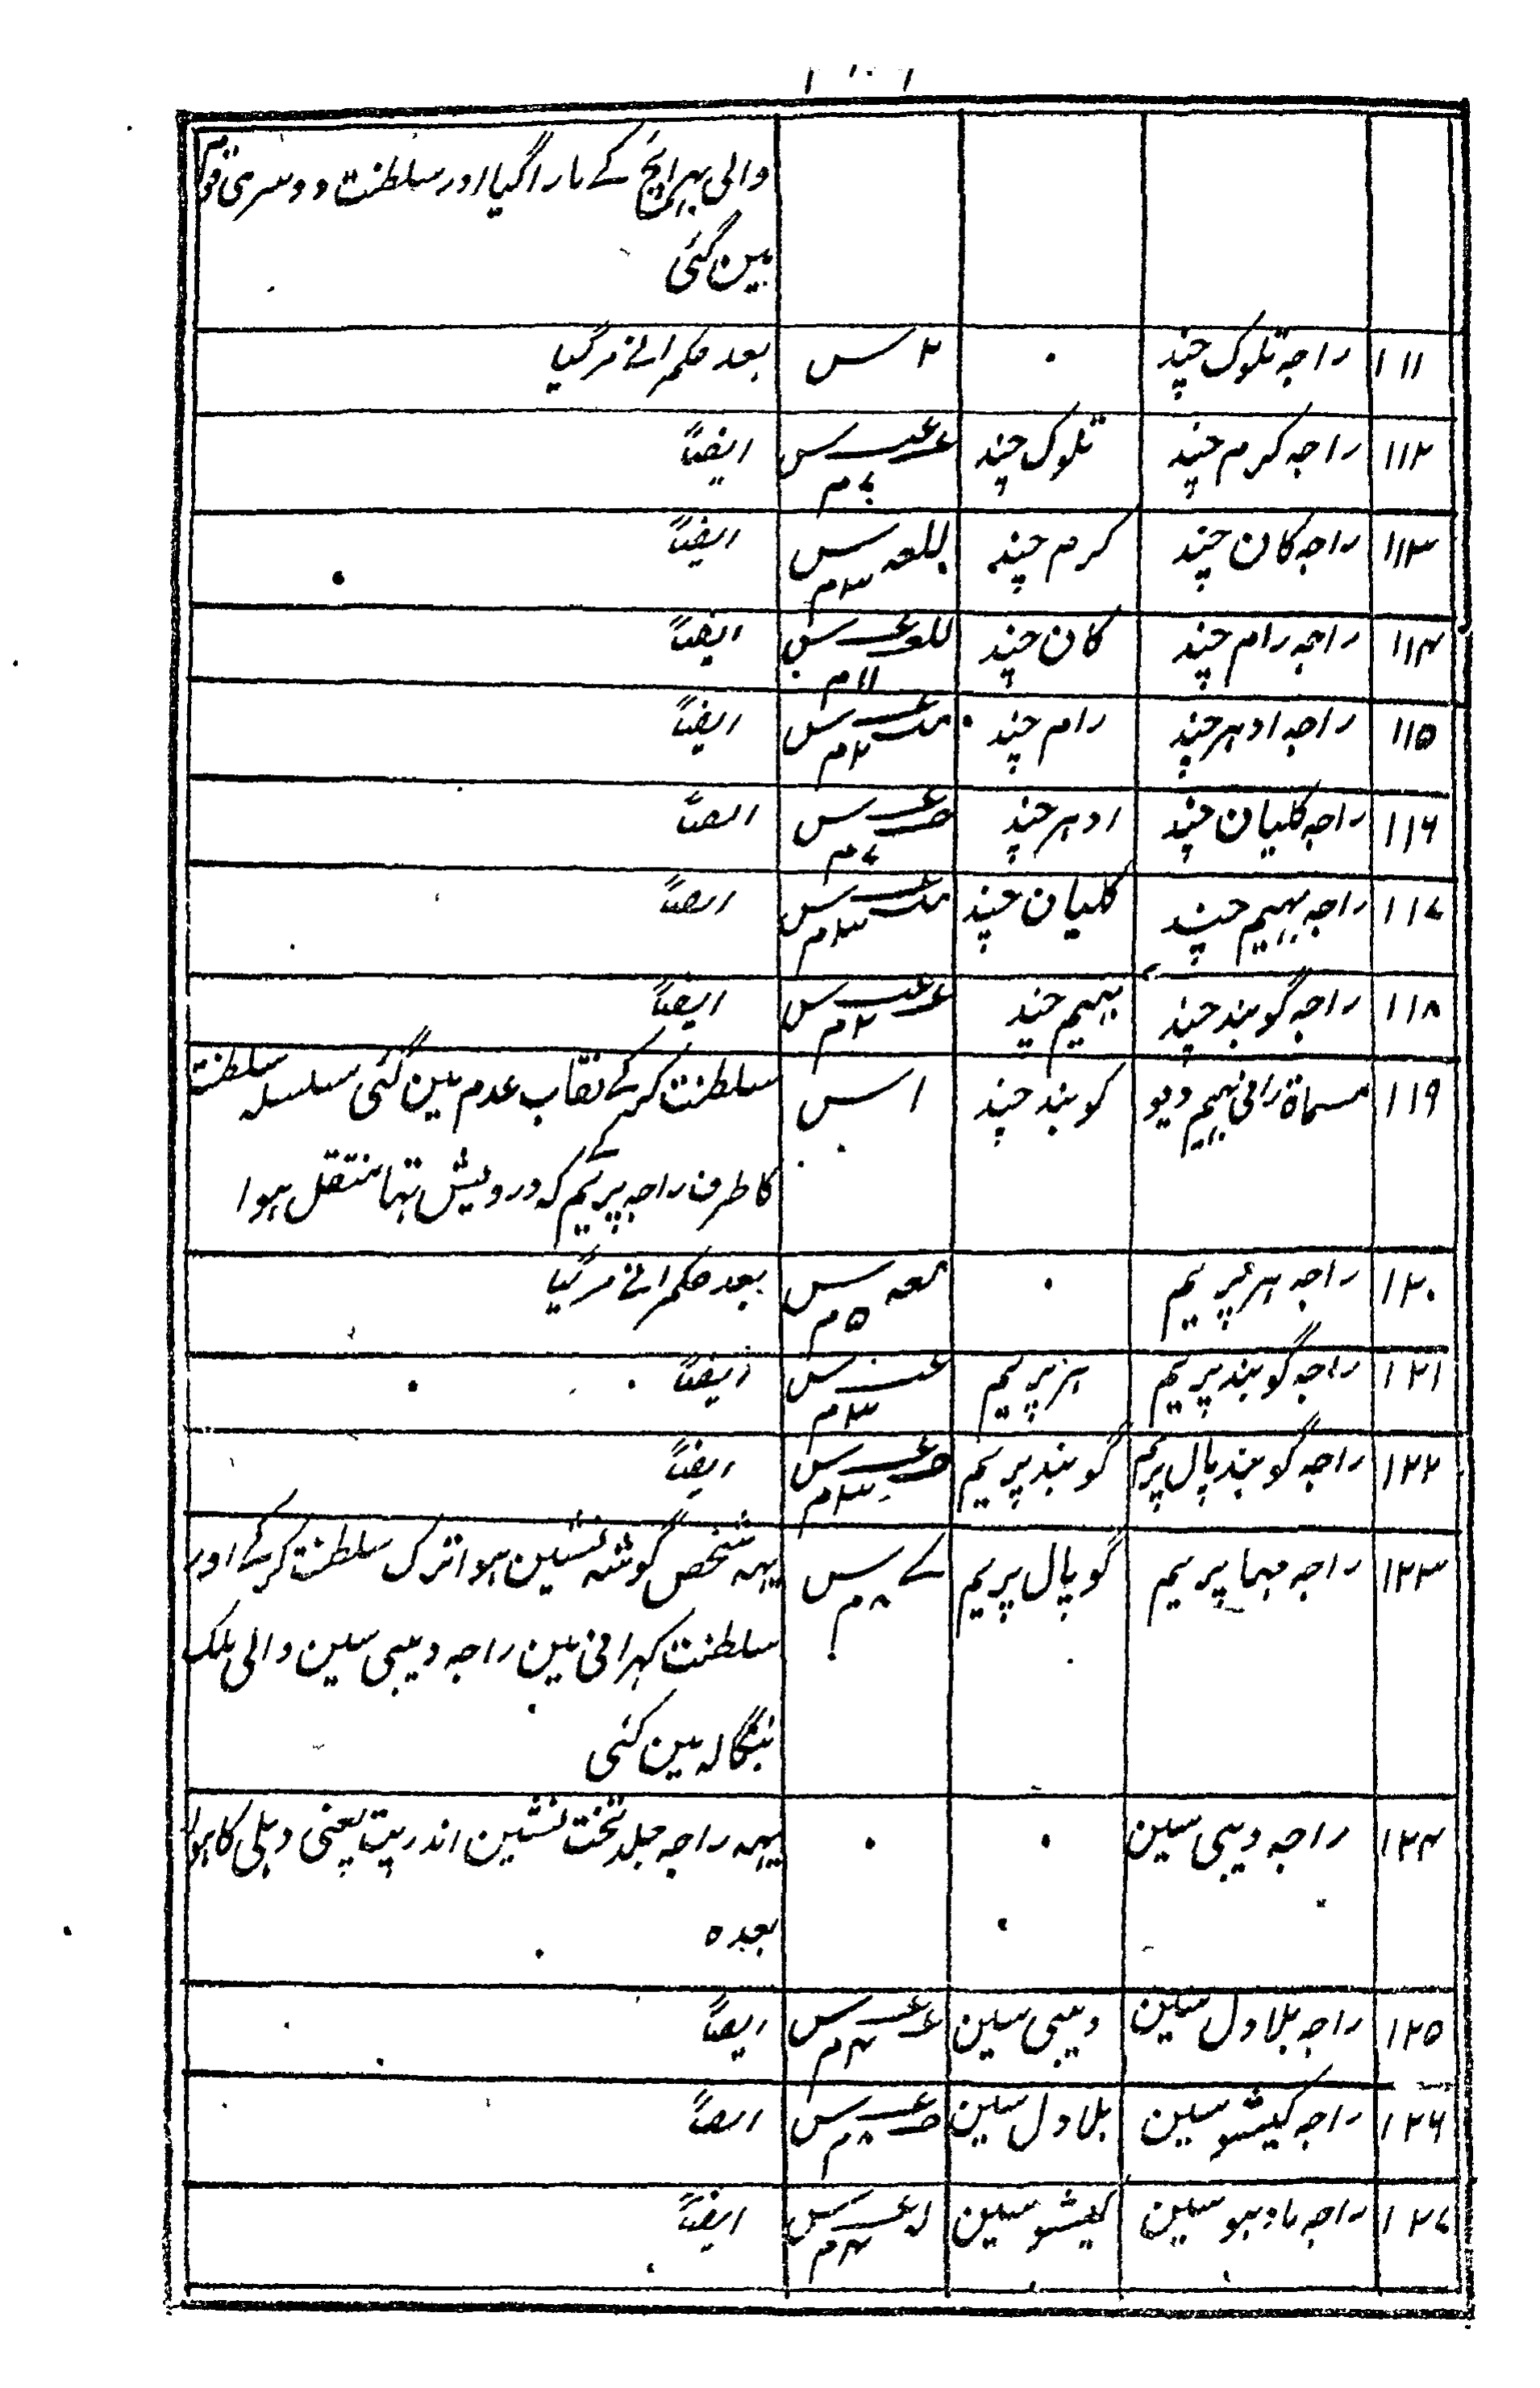 والی بہرائچ کے مارا گیا اور سلطنت دوسری قوم
مین گئی
۱۱۱ راجہ تلوک چند ۰ ۲ س بعد حکمرانے مرگیا
۱۱۲ راجہ کرم چند تلوک چند س م ایضاً
۱۱۳ راجہ کان چند کرم چند س ۳ م ایضاً
۱۱۴ راجہ رام چند کان چند س ۱۱ م ایضاً
۱۱۵ راجہ ادہر چند رام چند س ۲ م ایضاً
۱۱۶ راجہ کلیان چند ادہر چند س ۷ م ایضاً
۱۱۷ راجہ بہیم چند کلیان چند س ۳ م ایضاً
۱۱۸ راجہ گوبند چند بہیم چند س ۲ م ایضاً
۱۱۹ مسماۃ رانی بہیم دیو گوبند چند ۱ س سلطنت کرکے نقاب عدم مین گئی سلسلہ سلطنت
کا طرف راجہ پریم کے کہ درویش تہا منتقل ہوا
۱۲۰ راجہ ہر پریم ۰ س ۵ م بعد حکمرانے مرگیا
۱۲۱ راجہ گوبند پریم ہر پریم س ۳ م ایضاً
۱۲۲ راجہ گوبند پال پریم گوبند پریم س ۳ م ایضاً
۱۲۳ راجہ مہا پریم گوپال پریم س ۸ م یہہ شخص گوشہ نشین ہوا ترک سلطنت کرکے اور
سلطنت کہرانی مین راجہ دیبی سین والی ملک
بنگالہ مین گئی
۱۲۴ راجہ دیبی سین ۰ ۰ یہہ راجہ جلد تخت نشین اندرپت یعنی دہلی کا ہوا
بعدہ
۱۲۵ راجہ بلاول سین دیبی سین س ۴ م ایضاً
۱۲۶ راجہ کیشو سین بلاول سین س ۸ م ایضاً
۱۲۷ راجہ مادہو سین کیشو سین س ۴ م ایضاً